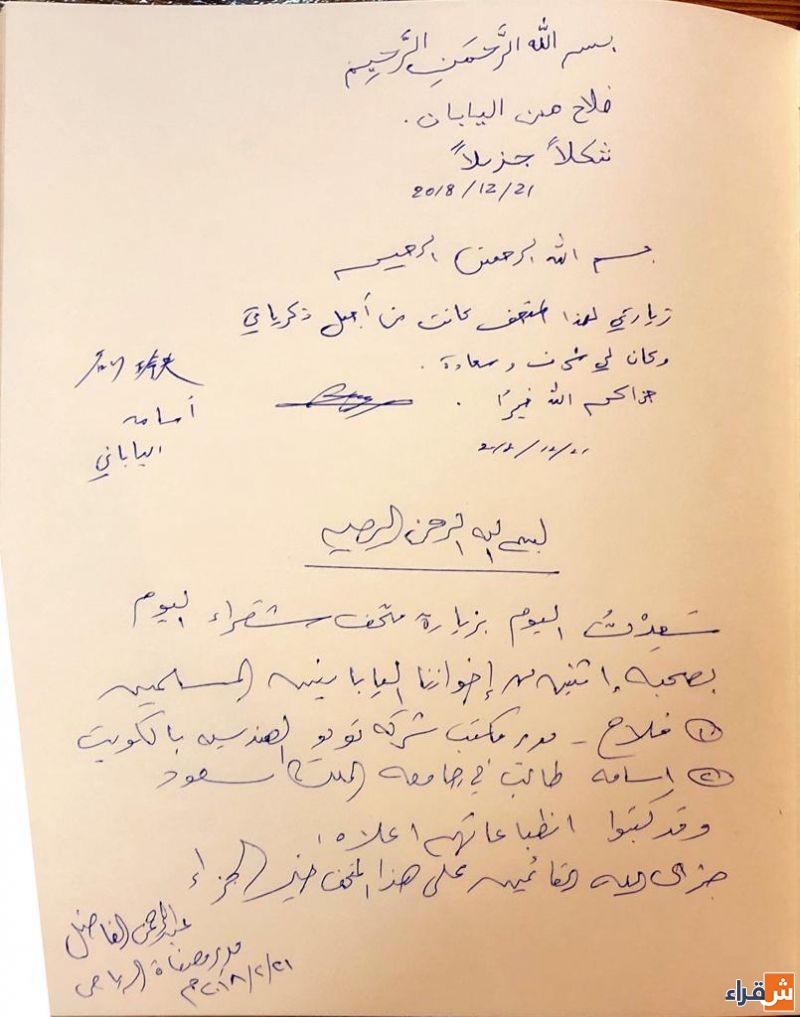 بسم الله الرَّحمَنِ الرَّحِيمِ
فلاح من اليابان.
شكلاً جزيلاً
2018/12/21
بسم الله الرحمن الرحيم
زيارتي لهذا المتحف كانت من أجمل ذكرياتي
وكان لي شرف وسعادة.
جزاكم الله خيرًا.
أسامه
الياباني
بسم الله الرحمن الرحيم
سَعِدْتُ اليوم بزيارة متحف شقراء اليوم
بصحبه اثنين من إخواننا اليابانيين المسلمين
(١) فلاح - مدير مكتب شركة تويو الهندسيه بالكويت
(٢) اسامه طالب في جامعه الملك سعود
وقد كتبوا انطباعاتهم اعلاه،
جزى الله القائمين على هذا المتحف خير الجزاء
عبدالرحمن الفاضل
مدير مصفاة الرياض
شقراء